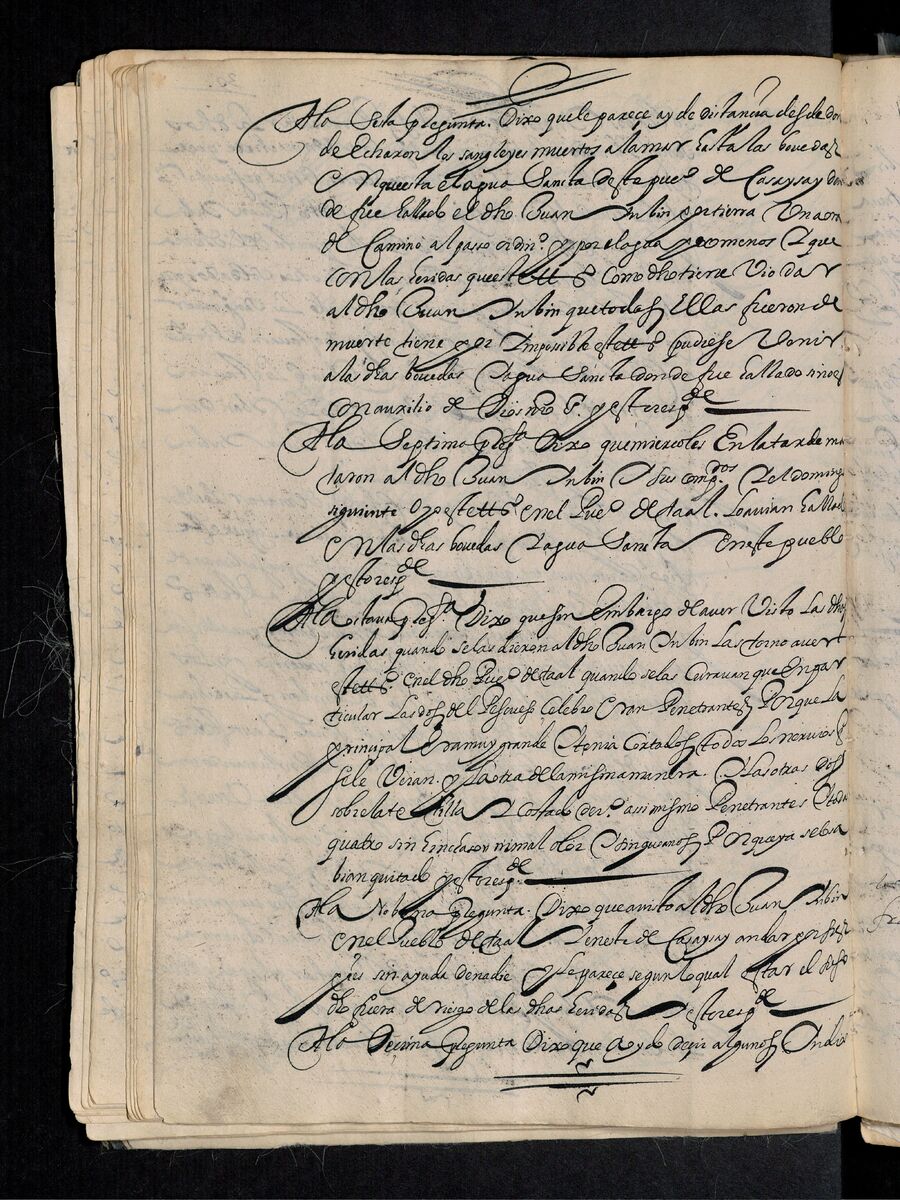 A la sesta pregunta. Dixo que le pareçe ay de distançia desde don
de Echaron los sangleyes muertos a la mar hasta las bovedas
En questa el agua Sancta deste pueº de Casaysay don
de fue hallado el dho Juan Inbin por tierra Una ora
de Camino al passo ordinº. y por el agua poco menos Y que
con las heridas que este ttº Como dho tiene Vio dar
al dho Juan Inbin que todas Ellas fueron de
muerte tiene por Imposible este ttº pudiese Venir
a las dhas bovedas Y agua Sancta donde fue hallado si no es
con auxilio de Dios nro Sr. y esto respde
A la Septima pregta Dixo que miercoles En la tarde ma
taron al dho Juan Inbin Y sus compos. Y el domingo
siguiente Oyo este ttº en el Pueº de taal. lo avian hallado
En las dhas bovedas Y agua Sancta En este pueblo
y esto respde
A la otava pregta. Dixo que sin Embargo de aver Visto las dhas
heridas quando se las dieron al dho Juan Inbin las torno a ver
este ttº en el dho Pueº de taal quando se las Curavan que En par
ticular las dos del Pescueso Celebro Eran Penetrantes Porque la
principal Era muy grande Y tenia Cortados todos los nervios q
se le Veian. y la otra de la misma manera. Y las otras dos
sobre la tetilla Y Costado derº. assi mismo Penetrantes Y todas
quatro sin hinchaçon ni mal olor Y sin gusanos Porque ya se los a
bian quitado y esto respde
A la Nobena Pregunta. Dixo que a visto al dho Juan Inbin
en el Pueblo de taal Y en este de Casaysay andar por sus
pies sin ayuda de nadie Y le pareçe segun lo qual estar el suso
dho fuera de riesgo de las dhas heridas Y esto respde
A la Deçima Pregunta Dixo que a oydo deçir algunos Indios